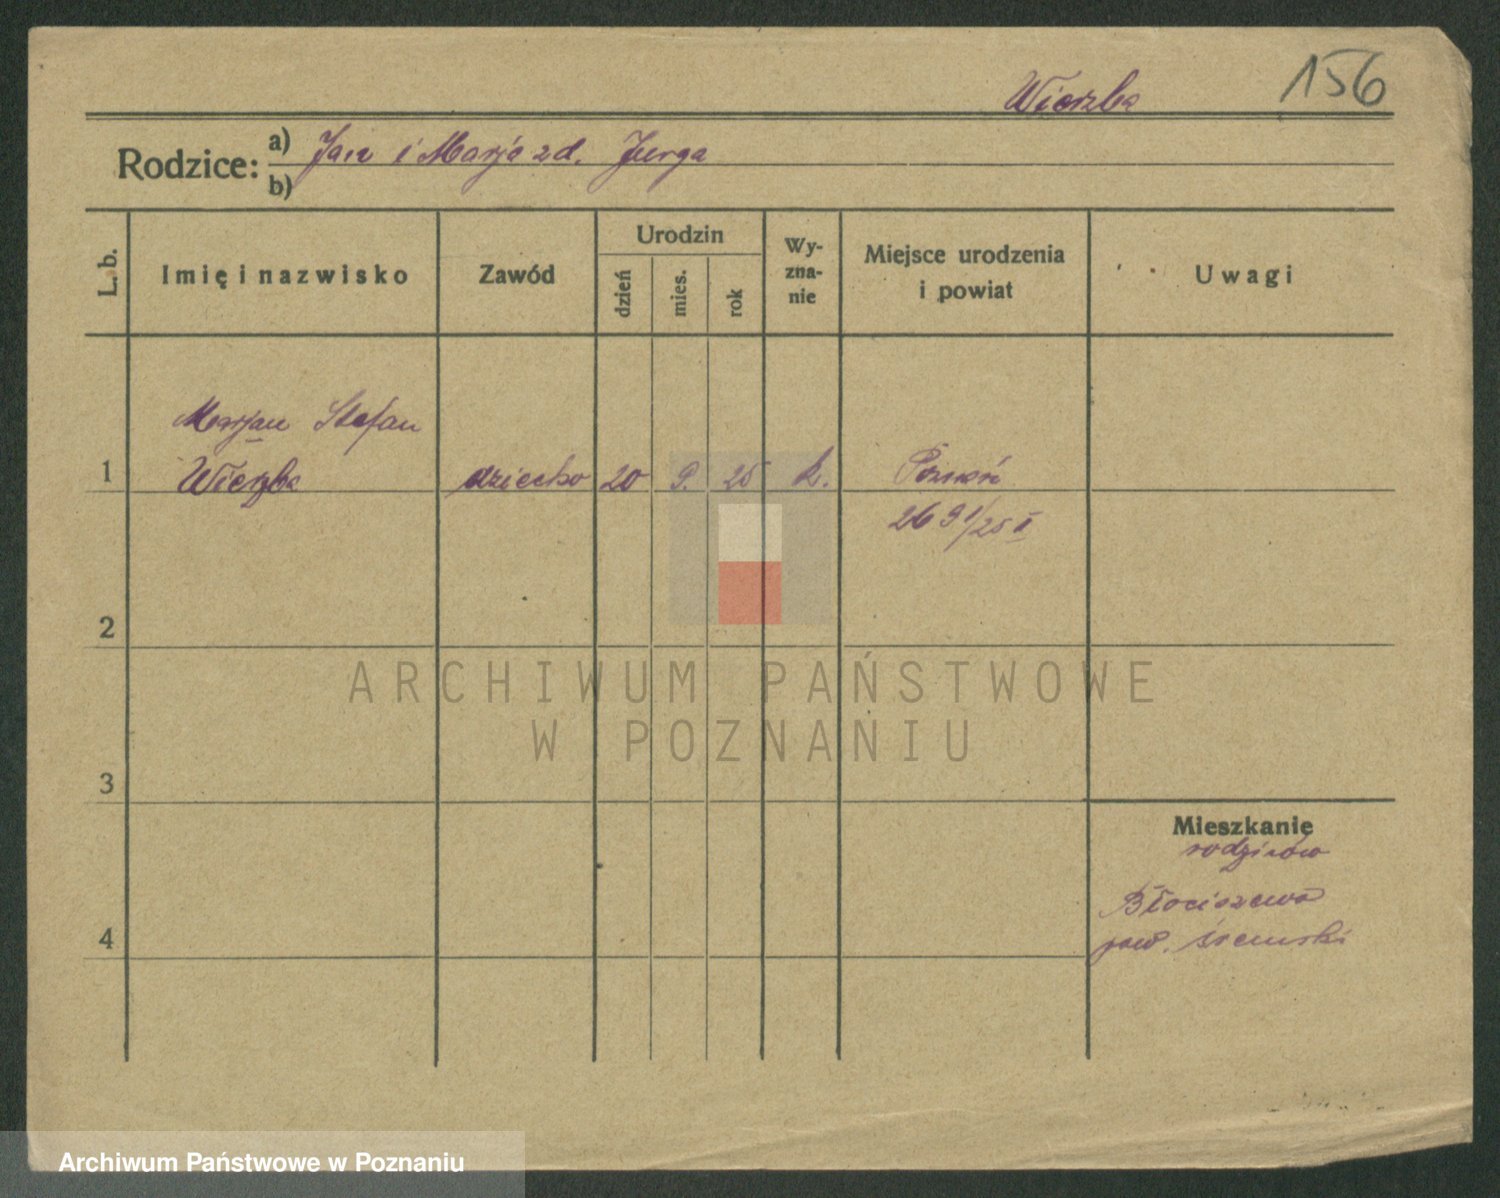 156
Wierzba
Rodzice:
a) Jan i Marja zd. Jurga
b)
L. b.
Imię i nazwisko
Zawód
Urodzin
dzień
mies.
rok
Wy-
zna-
nie
Miejsce urodzenia
i powiat
Uwagi
Marjan Stefan
1 Wierzba dziecko 20 9. 25 k. Poznań
2691/25 II
2
3
4
Mieszkanie
rodziców
Błociszewo
pow. śremski
ARCHIWUM PAŃSTWOWE
W POZNANIU
Archiwum Państwowe w Poznaniu